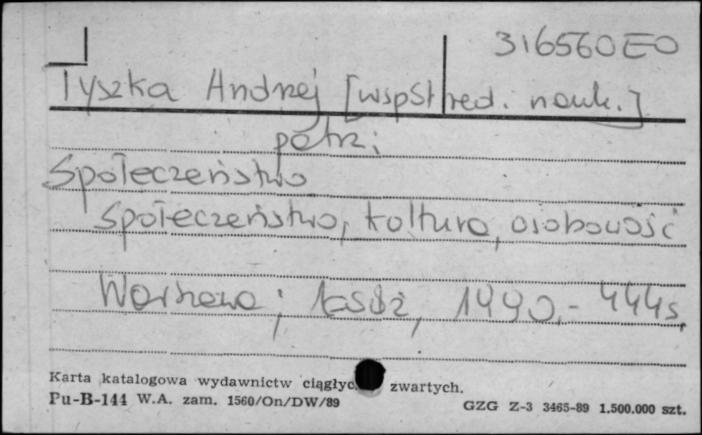 316560 EO
Tyszka Andrzej [wspst red. nauk.]
patrz:
Społeczeństwo
Społeczeństwo, kultura, osobowość
Warszawa; 1990.- 444s.
Karta katalogowa wydawnictw ciągłyc zwartych.
Pu-B-144 W.A. zam. 1560/On/DW/89 GZG Z-3 3465-89 1.500.000 szt.